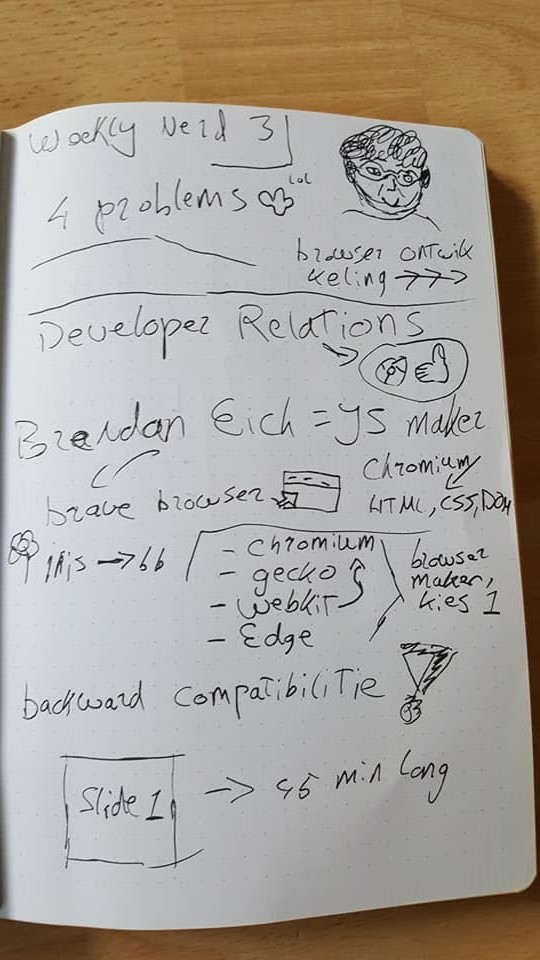 Weekly Nerd 3
4 problems lol
browser ontwik
keling →>>
Developer Relations
Brendan Eich = JS maker
brave browser
Chromium
HTML, CSS, DOM
iris → bb
- chromium
- gecko
- webkit
- Edge
browser
maker,
kies 1
backward compatibilitie
Slide 1 → 45 min long